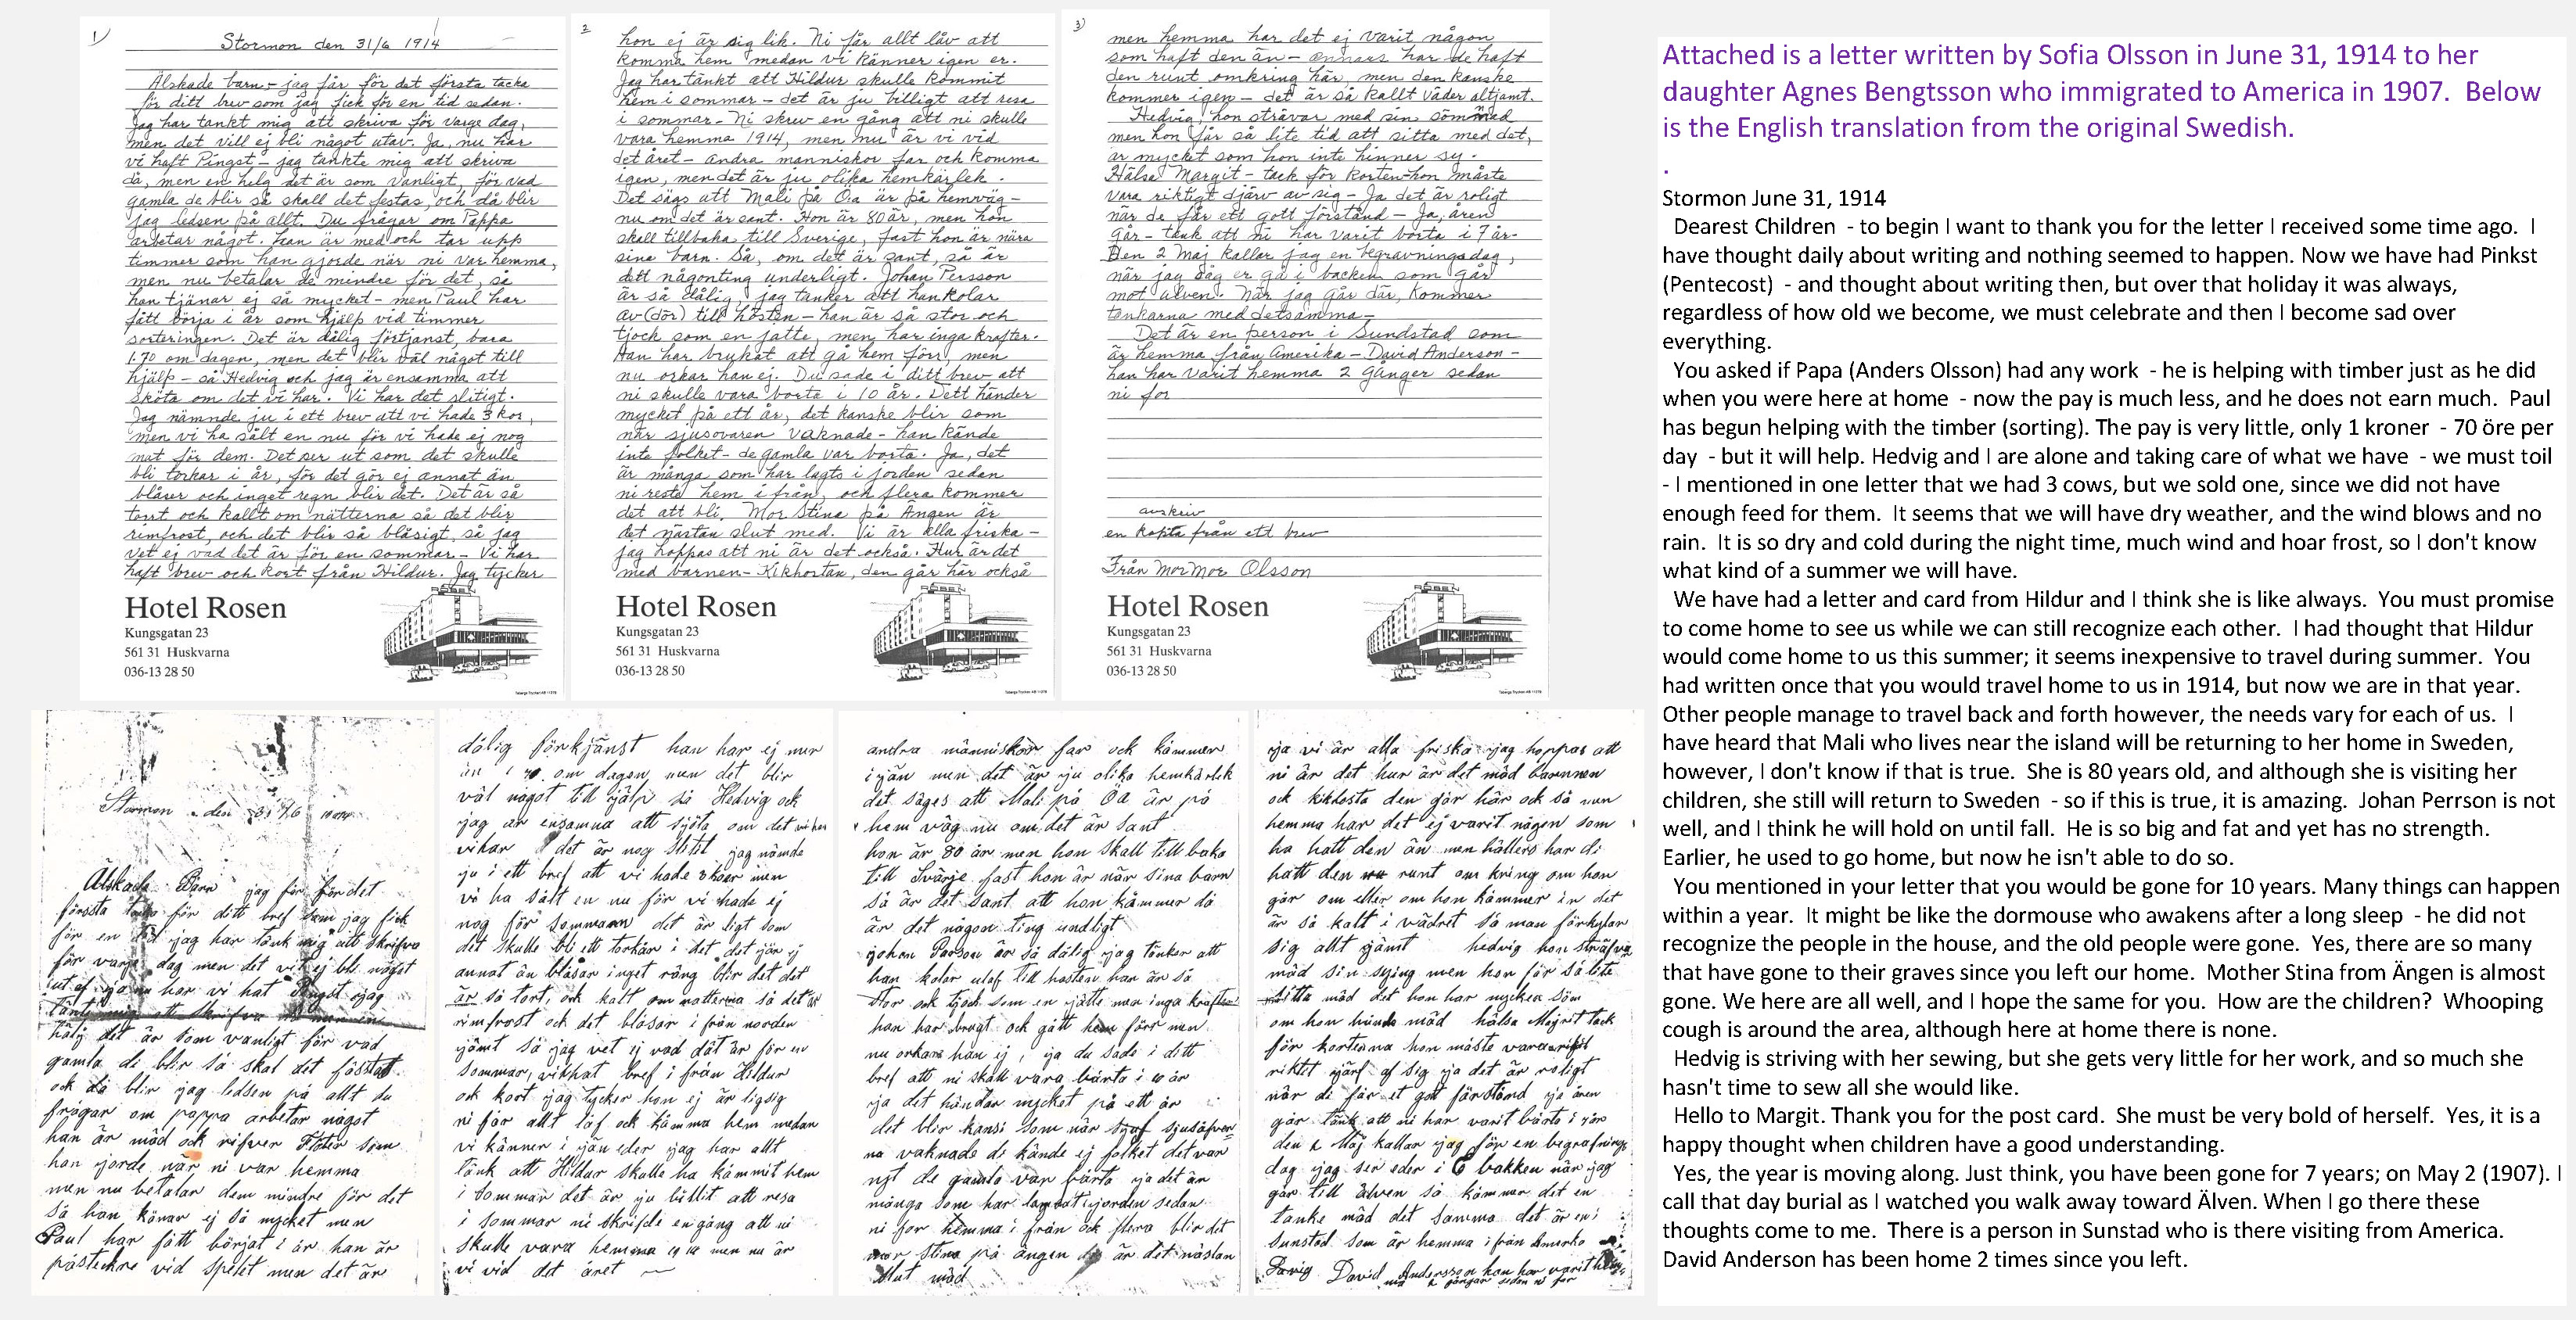 1)
Stormon den 31/6 1914
Älskade barn - jag får för det första tacka
för ditt brev som jag fick för en tid sedan.
Jag har tänkt mig att skriva för varge dag,
men det vill ej bli något utav. Ja, nu har
vi haft Pingst - jag tänkte mig att skriva
då, men en helg det är som vanligt, för vad
gamla de blir så skall det festas, och då blir
jag ledsen på allt. Du frågar om Pappa
arbetar något. han är med och tar upp
timmer som han gjorde när ni var hemma,
men nu betalar de mindre för det, så
han tjänar ej så mycket - men Paul har
fått börja i år som hjälp vid timmer
sorteringen. Det är dålig förtjänst, bara
1.70 om dagen, men det blir väl något till
hjälp - så Hedvig och jag är ensamma att
sköta om det vi har. Vi har det slitigt.
Jag nämnde ju i ett brev att vi hade 3 kor,
men vi ha sålt en nu för vi hade ej nog
mat för dem. Det ser ut som det skulle
bli torkar i år, för det gör ej annat än
blåser och inget regn blir det. Det är så
torrt och kallt om nätterna så det blir
rimfrost, och det blir så blåsigt, så jag
vet ej vad det är för en sommar - Vi har
haft brev och kort från Hildur. Jag tycker
Hotel Rosen
Kungsgatan 23
561 31 Huskvarna
036-13 28 50
2
hon ej är sig lik. Ni får allt låv att
komma hem medan vi känner igen er.
Jag har tänkt att Hildur skulle kommit
hem i sommar - det är ju billigt att resa
i sommar - Ni skrev en gång att ni skulle
vara hemma 1914, men nu är vi vid
det året - andra människor far och komma
igen, men det är ju olika hemkärlek.
Det sägs att Mali på Öa är på hemväg -
nu om det är sant. Hon är 80 år, men hon
skall tillbaka till Sverige, fast hon är nära
sina barn. Så, om det är sant, så är
dett någonting underligt. Johan Persson
är så dålig, jag tänker att han kolar
av (dör) till hösten - han är så stor och
tjock som en jätte, men har inga krafter.
Han har brykat att gå hem förr, men
nu orkar han ej. Du sade i ditt brev att
ni skulle vara borta i 10 år. Dett händer
mycket på ett år, det kanske blir som
när sjusovaren vaknade - han kände
inte folket - de gamla var borta. Ja, det
är många som har lagts i jorden sedan
ni reste hem i från, och flera kommer
det att bli. Mor Stina på Ängen är
det nästan slut med. Vi är alla friska -
jag hoppas att ni är det också. Hur är det
med barnen - Kikhostan, den går här också
Hotel Rosen
Kungsgatan 23
561 31 Huskvarna
036-13 28 50
3)
men hemma har det ej varit någon
som haft den än - annars har de haft
den runt omkring här, men den kanske
kommer igen - det är så kallt väder altjämt.
Hedvig hon strävar med sin sömnad
men hon får så lite tid att sitta med det,
är mycket som hon inte hinner sy.
Hälsa Margit - tack för korten - hon måste
vara riktigt djärv av sig - Ja det är roligt
när de får ett gott förstånd - Ja, åren
går - tänk att ni har varit borta i 7 år.
Den 2 Maj kallar jag en begravningsdag,
när jag såg er gå i backen som går
mot älven. När jag går där, kommer
tankarna med detsamma -
Det är en person i Sundstad som
är hemma från Amerika - David Anderson -
han har varit hemma 2 gånger sedan
ni for
avskriv
en kopia från ett brev
Från MorMor Olsson
Hotel Rosen
Kungsgatan 23
561 31 Huskvarna
036-13 28 50
Älskade Barn jag får för det
för ditt bref som jag fick
för en jag har tänk mig att skrifva
för varje dag men det bli något
har vi hat Pingst jag
hälj det är som vanligt för vad
gamla di blir så skal det
ock då blir jag ledsen på allt du
frågar om pappa arbetar något
han är mäd ock som
han jorde när ni var hemma
men nu betalar dem mindre för det
så han ej så mycket men
Paul har fått börjat i år han är
vid men det är
dålig han har ej mer
än 1 70 om dagen men det blir
väl något till jälp så Hedvig ock
jag är ensamna att sjöta om det
det är nog slitit jag nämde
ju i ett bref att vi hade 3 koer men
vi ha sålt en nu för vi hade ej
nog för det är ligt som
det skulle bli ett torkår i det det jör ej
annat än blåsar inget räng blir det det
är så tort, ock kalt om nätterna så det är
rimfrost ock det blåsar i från norden
jämt så jag vet ej vad dät är för en
sommar, bref i från Hildur
ock kort jag tycker hon ej är
ni får allt låf ock kämma hem medan
vi känner i jän eder jag har allt
tänk att Hildur skulle ha kämmit hem
i sommar det är ju billit att resa
i sommar ni skrifde en gång att ni
skulle vara hemma men nu är
vi vid det året
andra människor far ock kämmer
i jän men det är ju olika hemkärlek
det säges att Mali på Öa är på
hem väg nu om det är sant
hon är 80 år men hon skall till baka
till Svärje fast hon är när sina barn
så är det sant att hon kämmer då
är det någon ting undligt
johan Parson är så dålig jag tänker att
han kolar utaf till hösten han är så
stor ock tjock som en jätte men inga krafter
han har brugt ock gått hem förr men
nu orkars han ej, ja du sade i ditt
bref att ni skall vara bärta i 10 år
ja det händar mycket på ett år
det blir kansi som när
na vaknade di kände ej folket det var
nyt de gamla var bärta ja det är
många som har i jorden sedan
ni for hemma i från ock flera blir det
mor Stina på ängen är det nästan
slut mäd
ja vi är alla friska jag hoppas att
ni är det hur är det mäd barnnen
ock kikhosta den går här ock så men
hemma har det ej varit någen som
ha hatt den än men hällers har di
hatt den runt om kring om hon
går om eller om hon kämmer än det
är så kalt i vädret så man förkylar
sig allt jämt hedvig hon sträfva
mäd sin sying men hon får så lite
sitta mäd det hon har mycken söm
om hon mäd hälsa Majrit tack
för korterna hon måste vara
riktit järf af sig ja det är roligt
när di får et got förstånd ja åren
går tänk att ni har varit bärta i 7 år
den 2 Maj kallar jag för en begrafnings
dag jag ser eder i bakken när jag
går till älven så kämmer det en
tanke mäd det samma det är en i
Sunstad som är hemma i från Amerka
David Andersson han har varit
2 gångar sedan ni for
Attached is a letter written by Sofia Olsson in June 31, 1914 to her
daughter Agnes Bengtsson who immigrated to America in 1907. Below
is the English translation from the original Swedish.
.
Stormon June 31, 1914
Dearest Children - to begin I want to thank you for the letter I received some time ago. I
have thought daily about writing and nothing seemed to happen. Now we have had Pinkst
(Pentecost) - and thought about writing then, but over that holiday it was always,
regardless of how old we become, we must celebrate and then I become sad over
everything.
You asked if Papa (Anders Olsson) had any work - he is helping with timber just as he did
when you were here at home - now the pay is much less, and he does not earn much. Paul
has begun helping with the timber (sorting). The pay is very little, only 1 kroner - 70 öre per
day - but it will help. Hedvig and I are alone and taking care of what we have - we must toil
- I mentioned in one letter that we had 3 cows, but we sold one, since we did not have
enough feed for them. It seems that we will have dry weather, and the wind blows and no
rain. It is so dry and cold during the night time, much wind and hoar frost, so I don't know
what kind of a summer we will have.
We have had a letter and card from Hildur and I think she is like always. You must promise
to come home to see us while we can still recognize each other. I had thought that Hildur
would come home to us this summer; it seems inexpensive to travel during summer. You
had written once that you would travel home to us in 1914, but now we are in that year.
Other people manage to travel back and forth however, the needs vary for each of us. I
have heard that Mali who lives near the island will be returning to her home in Sweden,
however, I don't know if that is true. She is 80 years old, and although she is visiting her
children, she still will return to Sweden - so if this is true, it is amazing. Johan Perrson is not
well, and I think he will hold on until fall. He is so big and fat and yet has no strength.
Earlier, he used to go home, but now he isn't able to do so.
You mentioned in your letter that you would be gone for 10 years. Many things can happen
within a year. It might be like the dormouse who awakens after a long sleep - he did not
recognize the people in the house, and the old people were gone. Yes, there are so many
that have gone to their graves since you left our home. Mother Stina from Ängen is almost
gone. We here are all well, and I hope the same for you. How are the children? Whooping
cough is around the area, although here at home there is none.
Hedvig is striving with her sewing, but she gets very little for her work, and so much she
hasn't time to sew all she would like.
Hello to Margit. Thank you for the post card. She must be very bold of herself. Yes, it is a
happy thought when children have a good understanding.
Yes, the year is moving along. Just think, you have been gone for 7 years; on May 2 (1907). I
call that day burial as I watched you walk away toward Älven. When I go there these
thoughts come to me. There is a person in Sunstad who is there visiting from America.
David Anderson has been home 2 times since you left.